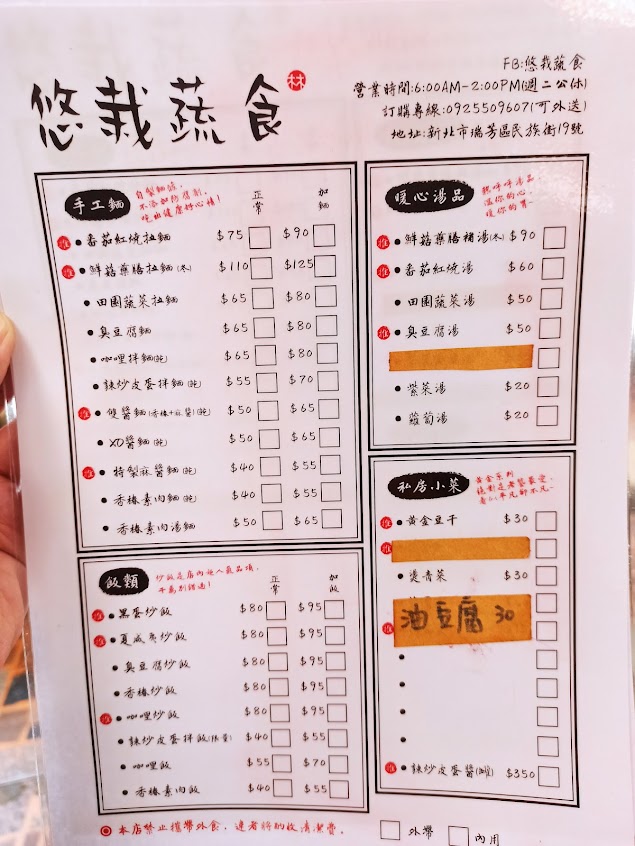 悠栽蔬食
林
FB:悠栽蔬食
營業時間:6:00AM-2:00PM(週二公休)
訂購專線:0925509607(可外送)
地址:新北市瑞芳區民族街19號
手工麵
自製麵條,
不添加防腐劑,
吃出健康好心情!
正常 加麵
推 • 番茄紅燒拉麵 $75 $90
推 • 鮮菇藥膳拉麵(冬) $110 $125
• 田園蔬菜拉麵 $65 $80
• 臭豆腐麵 $65 $80
• 咖哩拌麵(純) $65 $80
• 辣炒皮蛋拌麵(純) $55 $70
推 • 雙醬麵(香椿+麻醬)(純) $50 $65
• XO醬麵(純) $50 $65
推 • 特製麻醬麵(純) $40 $55
• 香椿素肉麵(純) $40 $55
• 香椿素肉湯麵 $50 $65
飯類
炒飯是店內超人氣品項,
千萬別錯過!
正常 加飯
推 • 黑蛋炒飯 $80 $95
推 • 夏威夷炒飯 $80 $95
• 臭豆腐炒飯 $80 $95
• 香椿炒飯 $80 $95
推 • 咖哩炒飯 $80 $95
• 辣炒皮蛋拌飯(限量) $40 $55
• 咖哩飯 $55 $70
• 香椿素肉飯 $40 $55
暖心湯品
熱呼呼湯品
溫你的心,
暖你的胃~
推 • 鮮菇藥膳補湯(冬) $90
推 • 番茄紅燒湯 $60
• 田園蔬菜湯 $50
推 • 臭豆腐湯 $50
• 紫菜湯 $20
• 蘿蔔湯 $20
私房小菜
黃金系列
推 • 黃金豆干 $30
推
• 燙青菜 $30
推 油豆腐 30
•
•
•
•
推 • 辣炒皮蛋醬(罐) $350
本店禁止攜帶外食,違者將酌收清潔費。
外帶 內用